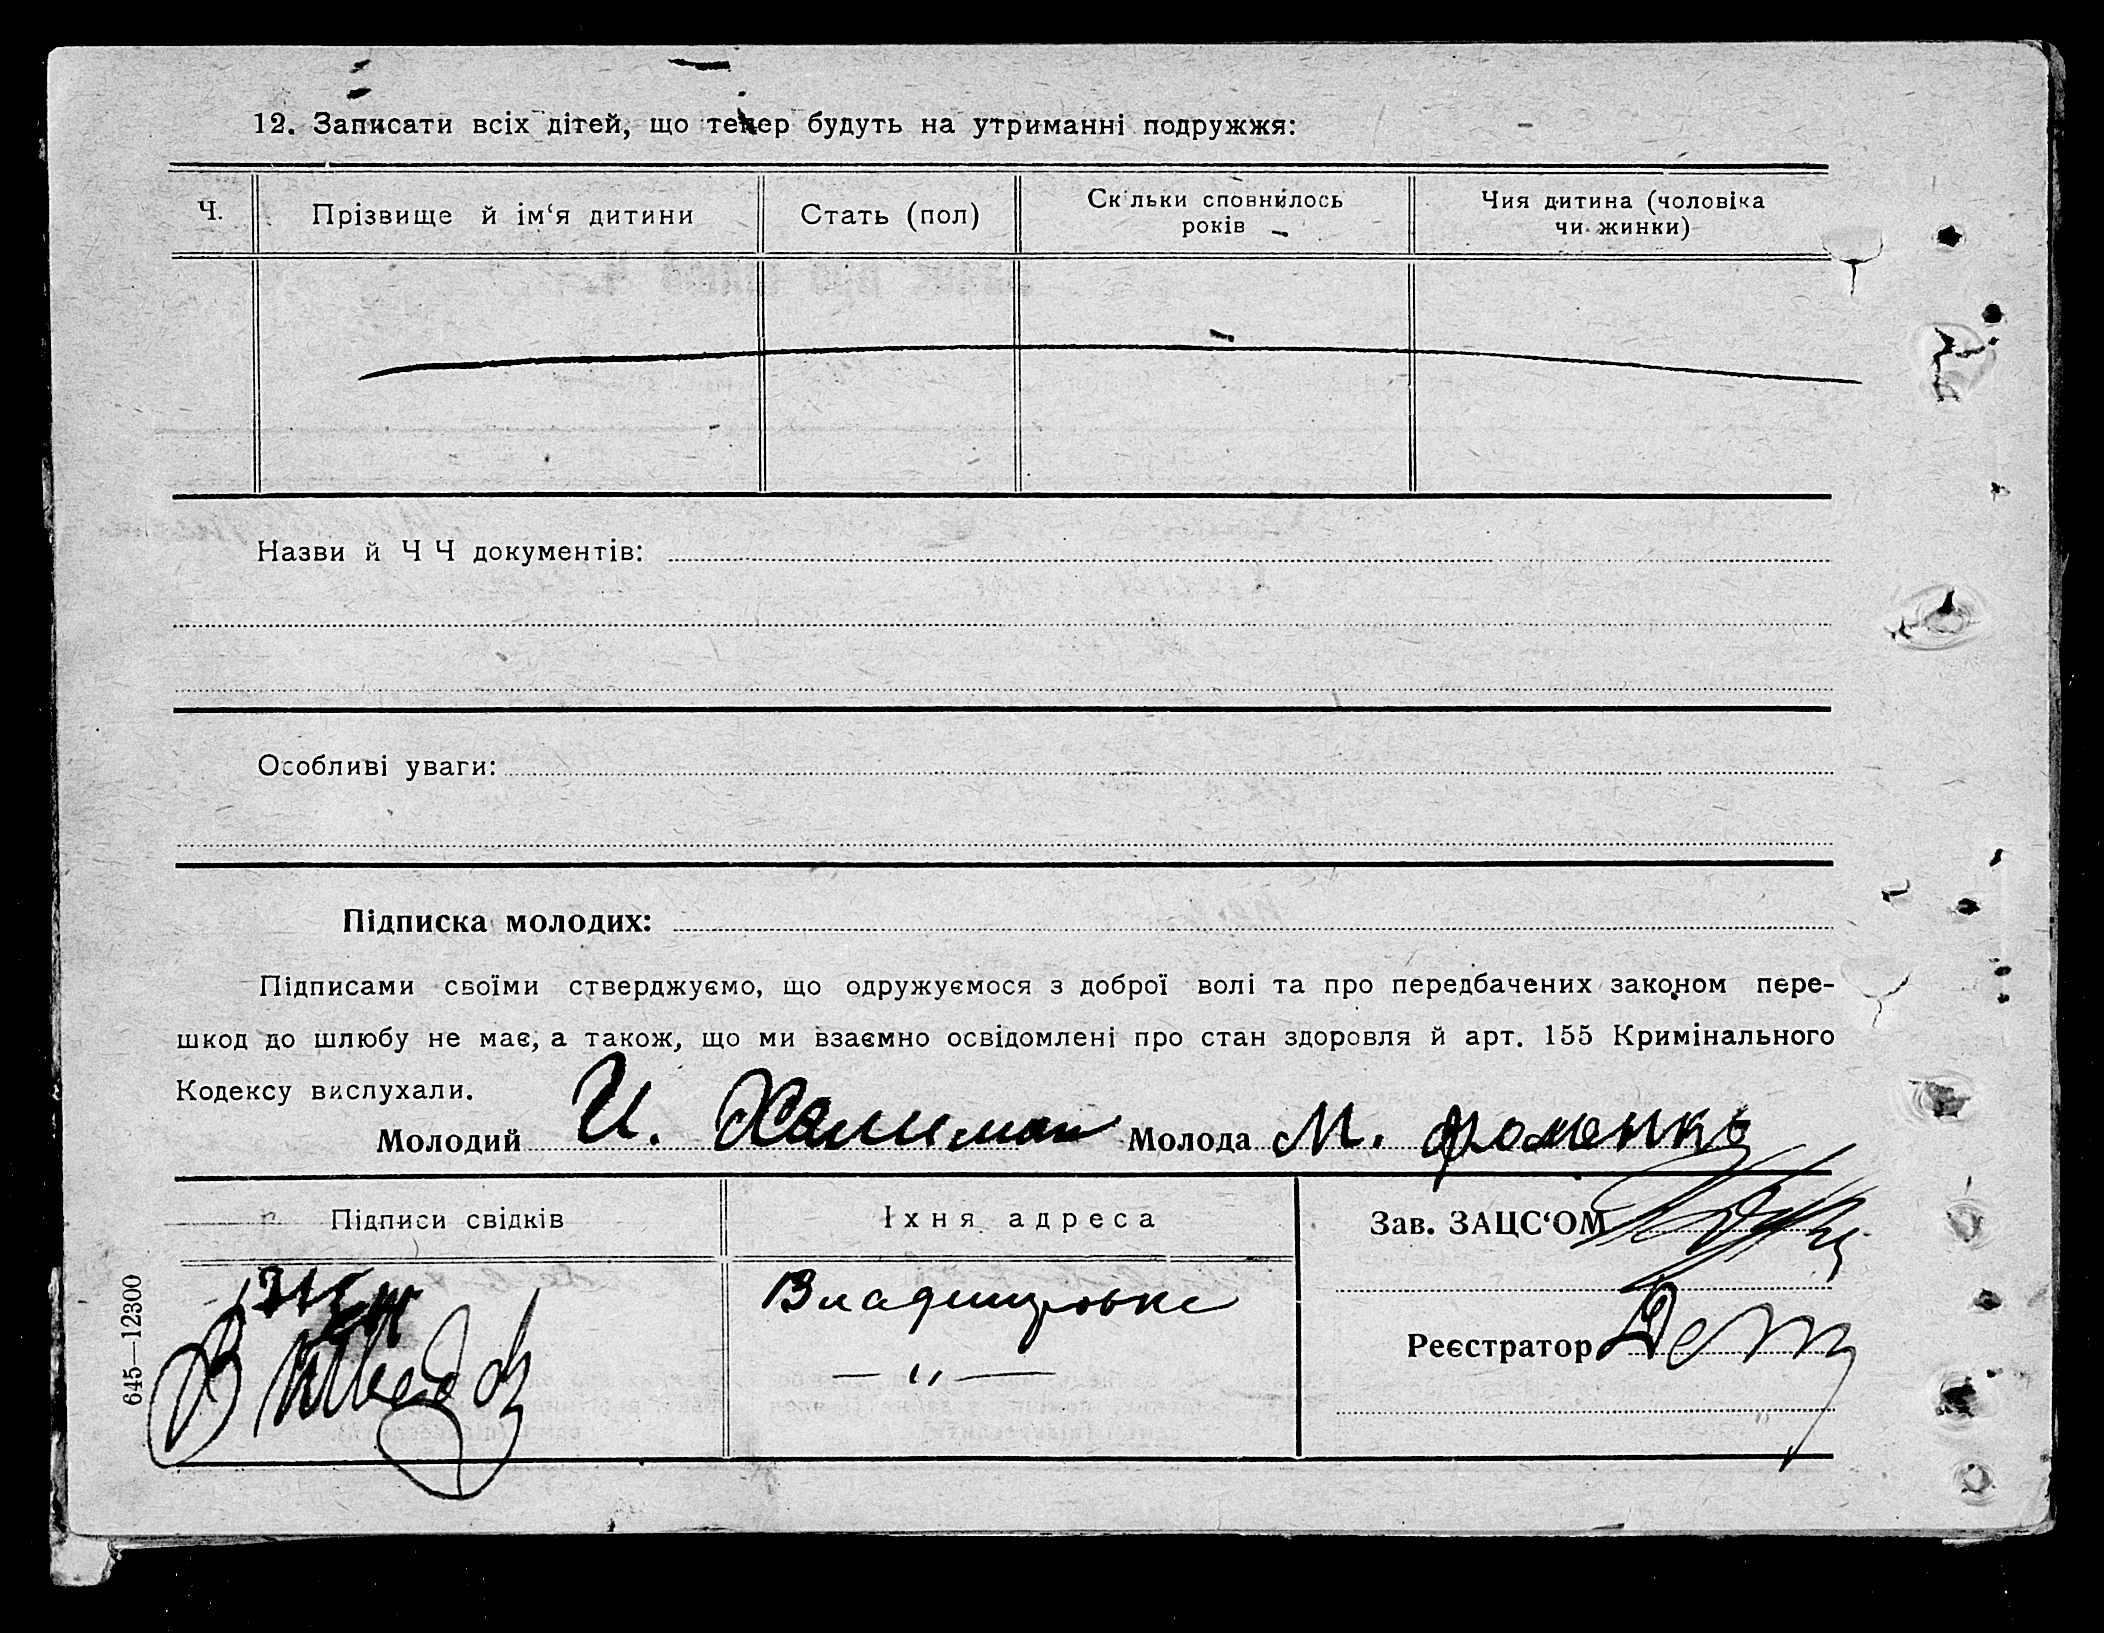 12. Записати всіх дітей, що тепер будуть на утриманні подружжя:
Ч.
Прізвище й ім‘я дитини
Стать (пол)
Скільки сповнилось
років
Чия дитина (чоловіка
чи жинки)
Назви й Ч Ч документів:
Особливі уваги:
Підписка молодих:
Підписами своїми стверджуємо, що одружуємося з доброї волі та про передбачених законом пере-
шкод до шлюбу не має, а також, що ми взаємно освідомлені про стан здоровля й арт. 155 Кримінального
Кодексу вислухали.
Молодий И. Халиман Молода М. Фоменко
Підписи свідків
Їхня адреса
Зав. ЗАЦС‘ОМ
Владимировка
— „ —
Реєстратор
645—12300